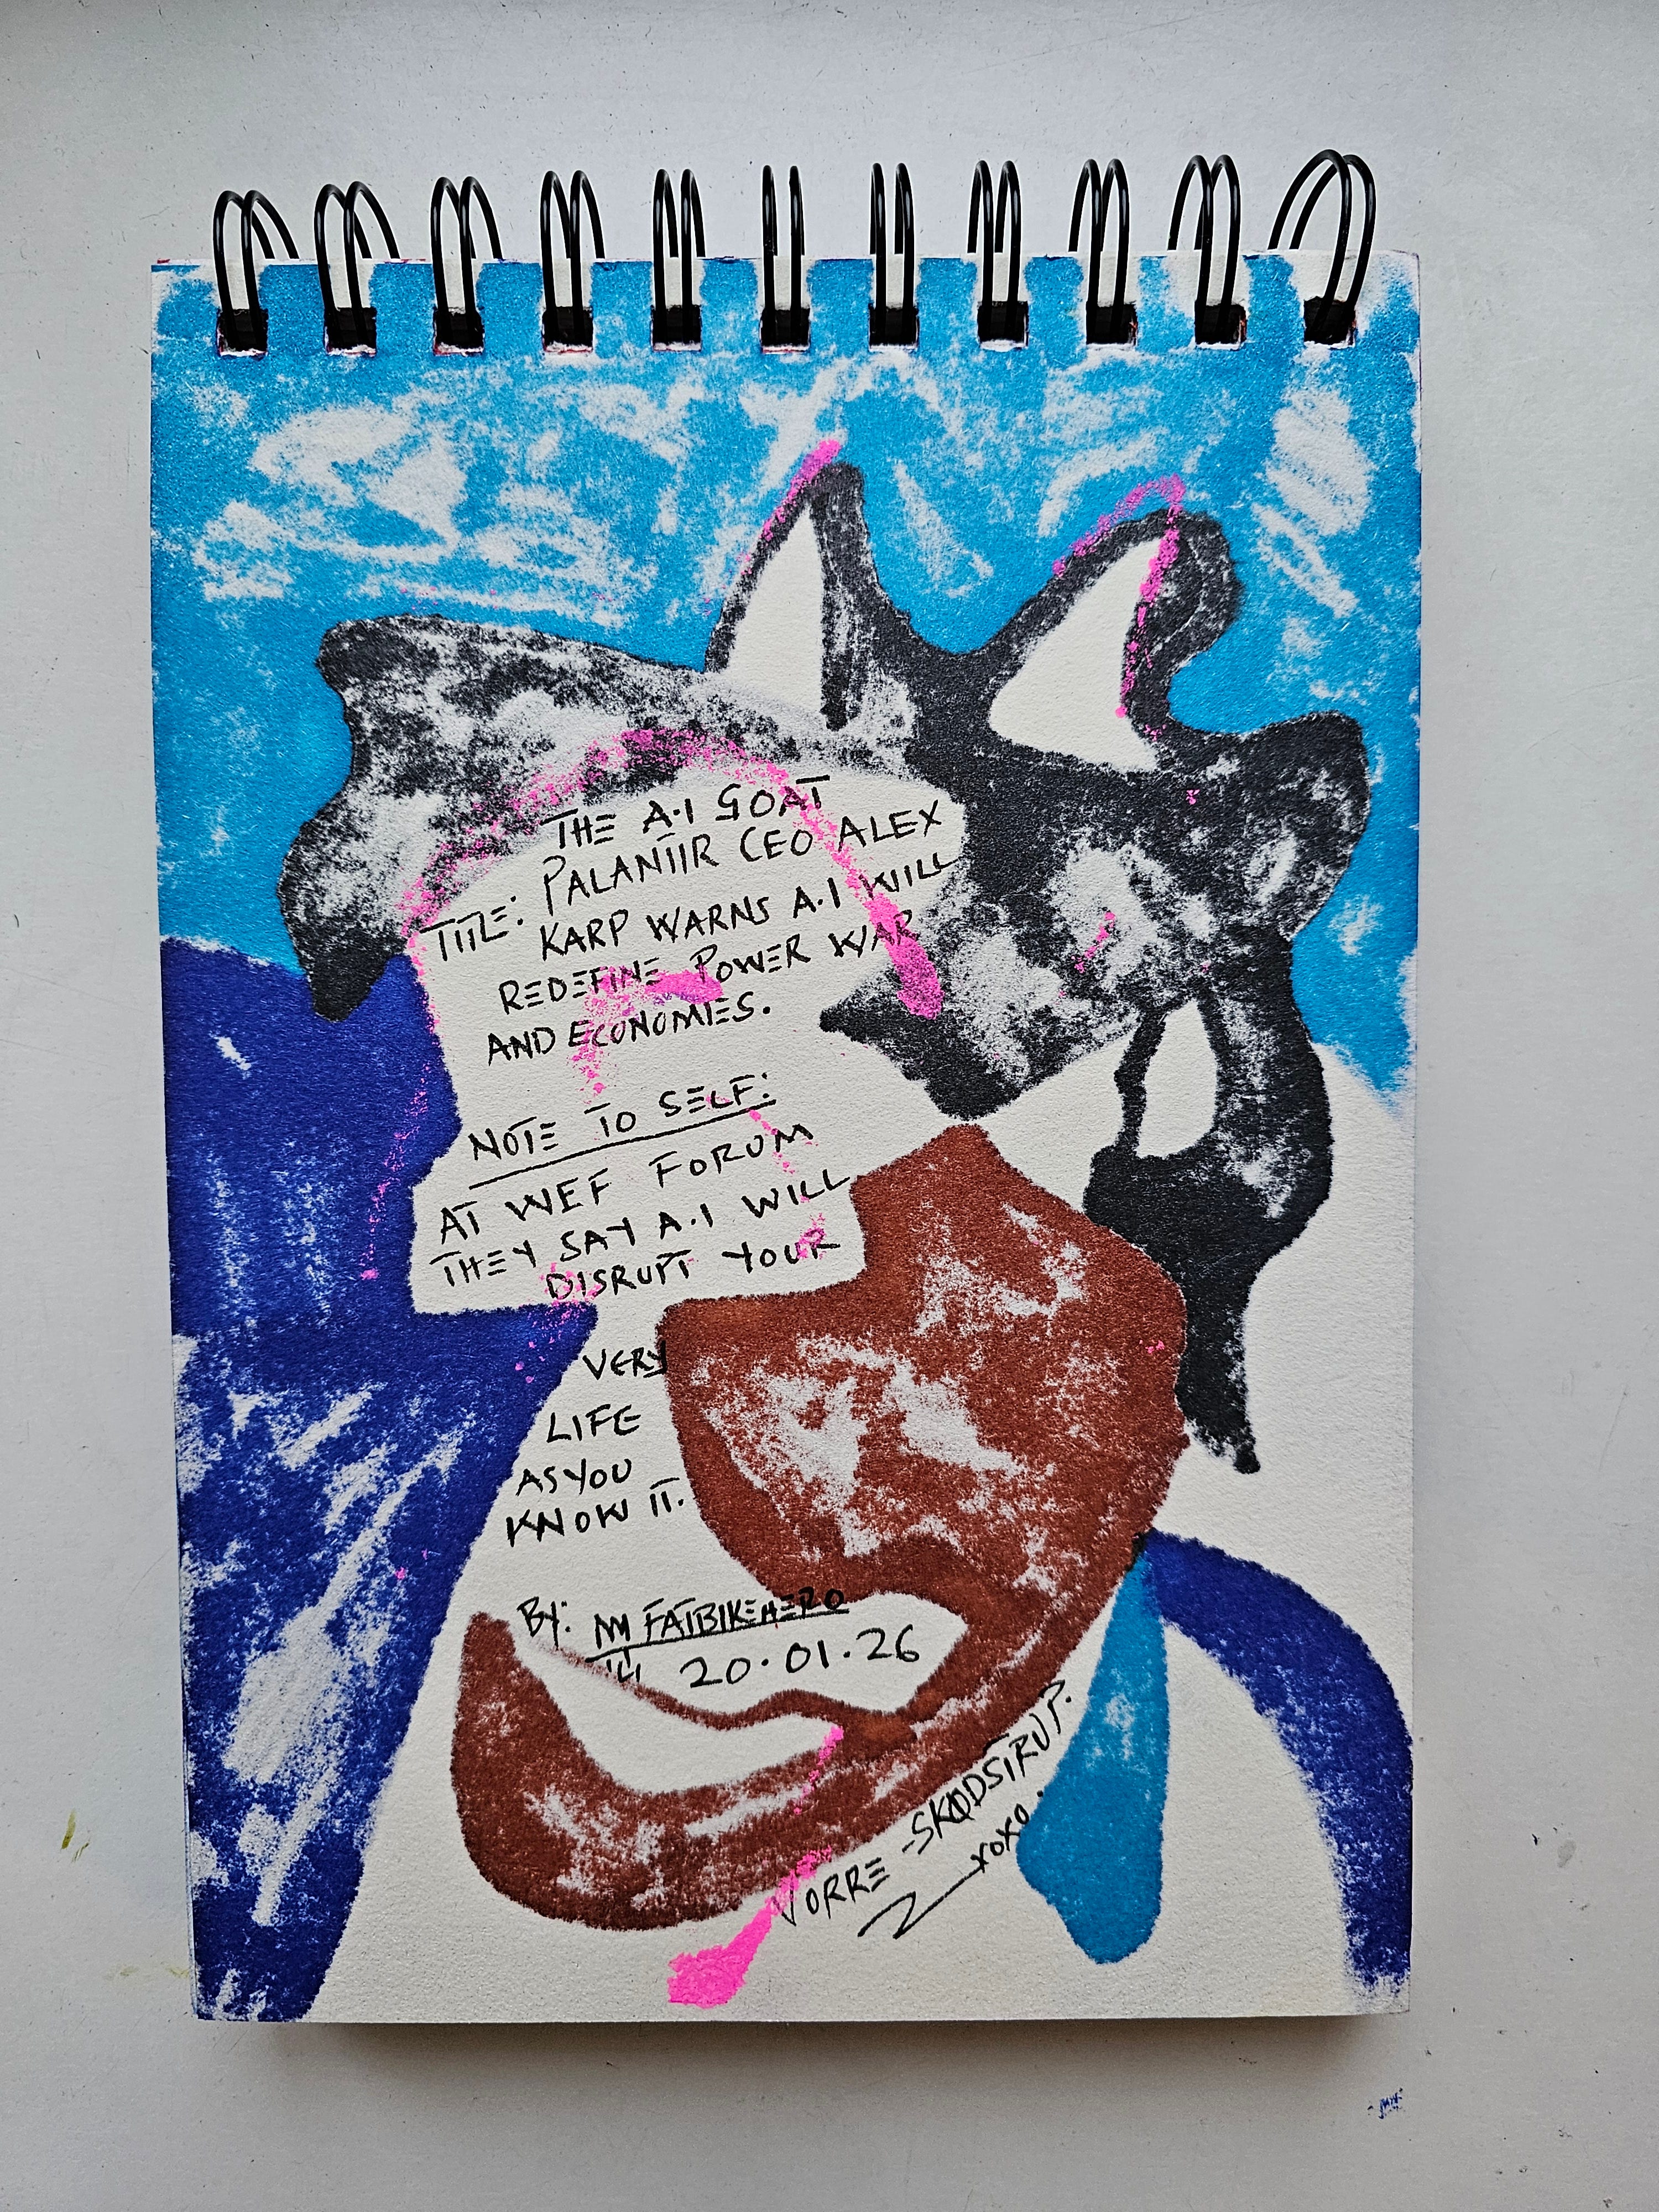 THE A.I GOAT
TITLE: PALANTIR CEO ALEX
KARP WARNS A.I WILL
REDEFINE POWER WAR
AND ECONOMIES.
NOTE TO SELF:
AT WEF FORUM
THEY SAY A.I WILL
DISRUPT YOUR
VERY
LIFE
AS YOU
KNOW IT.
BY: FATBIKEHERO
20.01.26
VORRE-SKØDSTRUP.
xoxo.